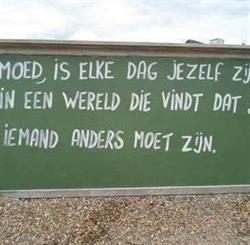 MOED, IS ELKE DAG JEZELF ZIJ
IN EEN WERELD DIE VINDT DAT J
IEMAND ANDERS MOET ZIJN.